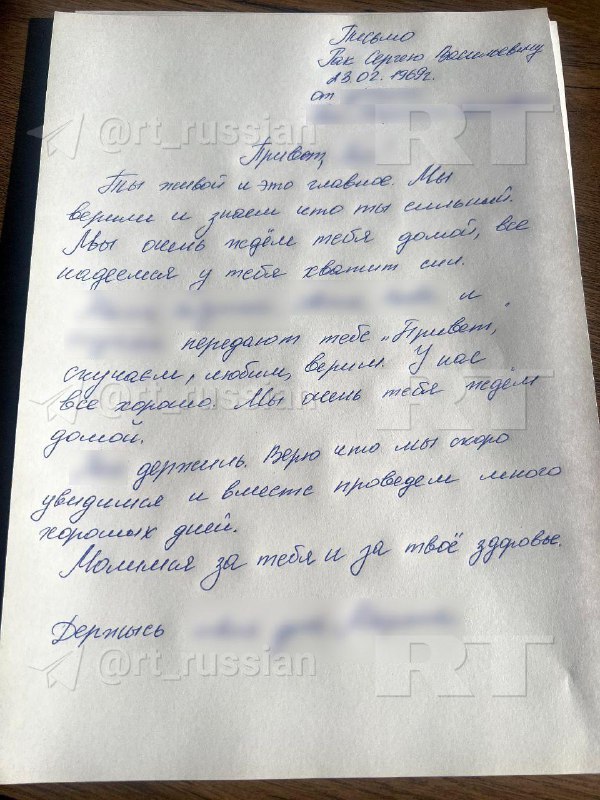 Письмо
Гак Сергею Васильевичу
23.02.1969г.
от
@rt_russian
RT
Привет,
Ты живой и это главное. Мы
верили и знаем что ты сильный.
Мы очень ждём тебя домой, все
надеемся у тебя хватит сил.
и
передают тебе "Привет,"
скучаем, любим, верим. У нас
RT
все хорошо. Мы очень тебя ждём
@rt_russian
домой.
держись. Верю что мы скоро
увидимся и вместе проведем много
хороших дней.
Молимся за тебя и за твоё здоровье.
Держысь
@rt_russian
RT